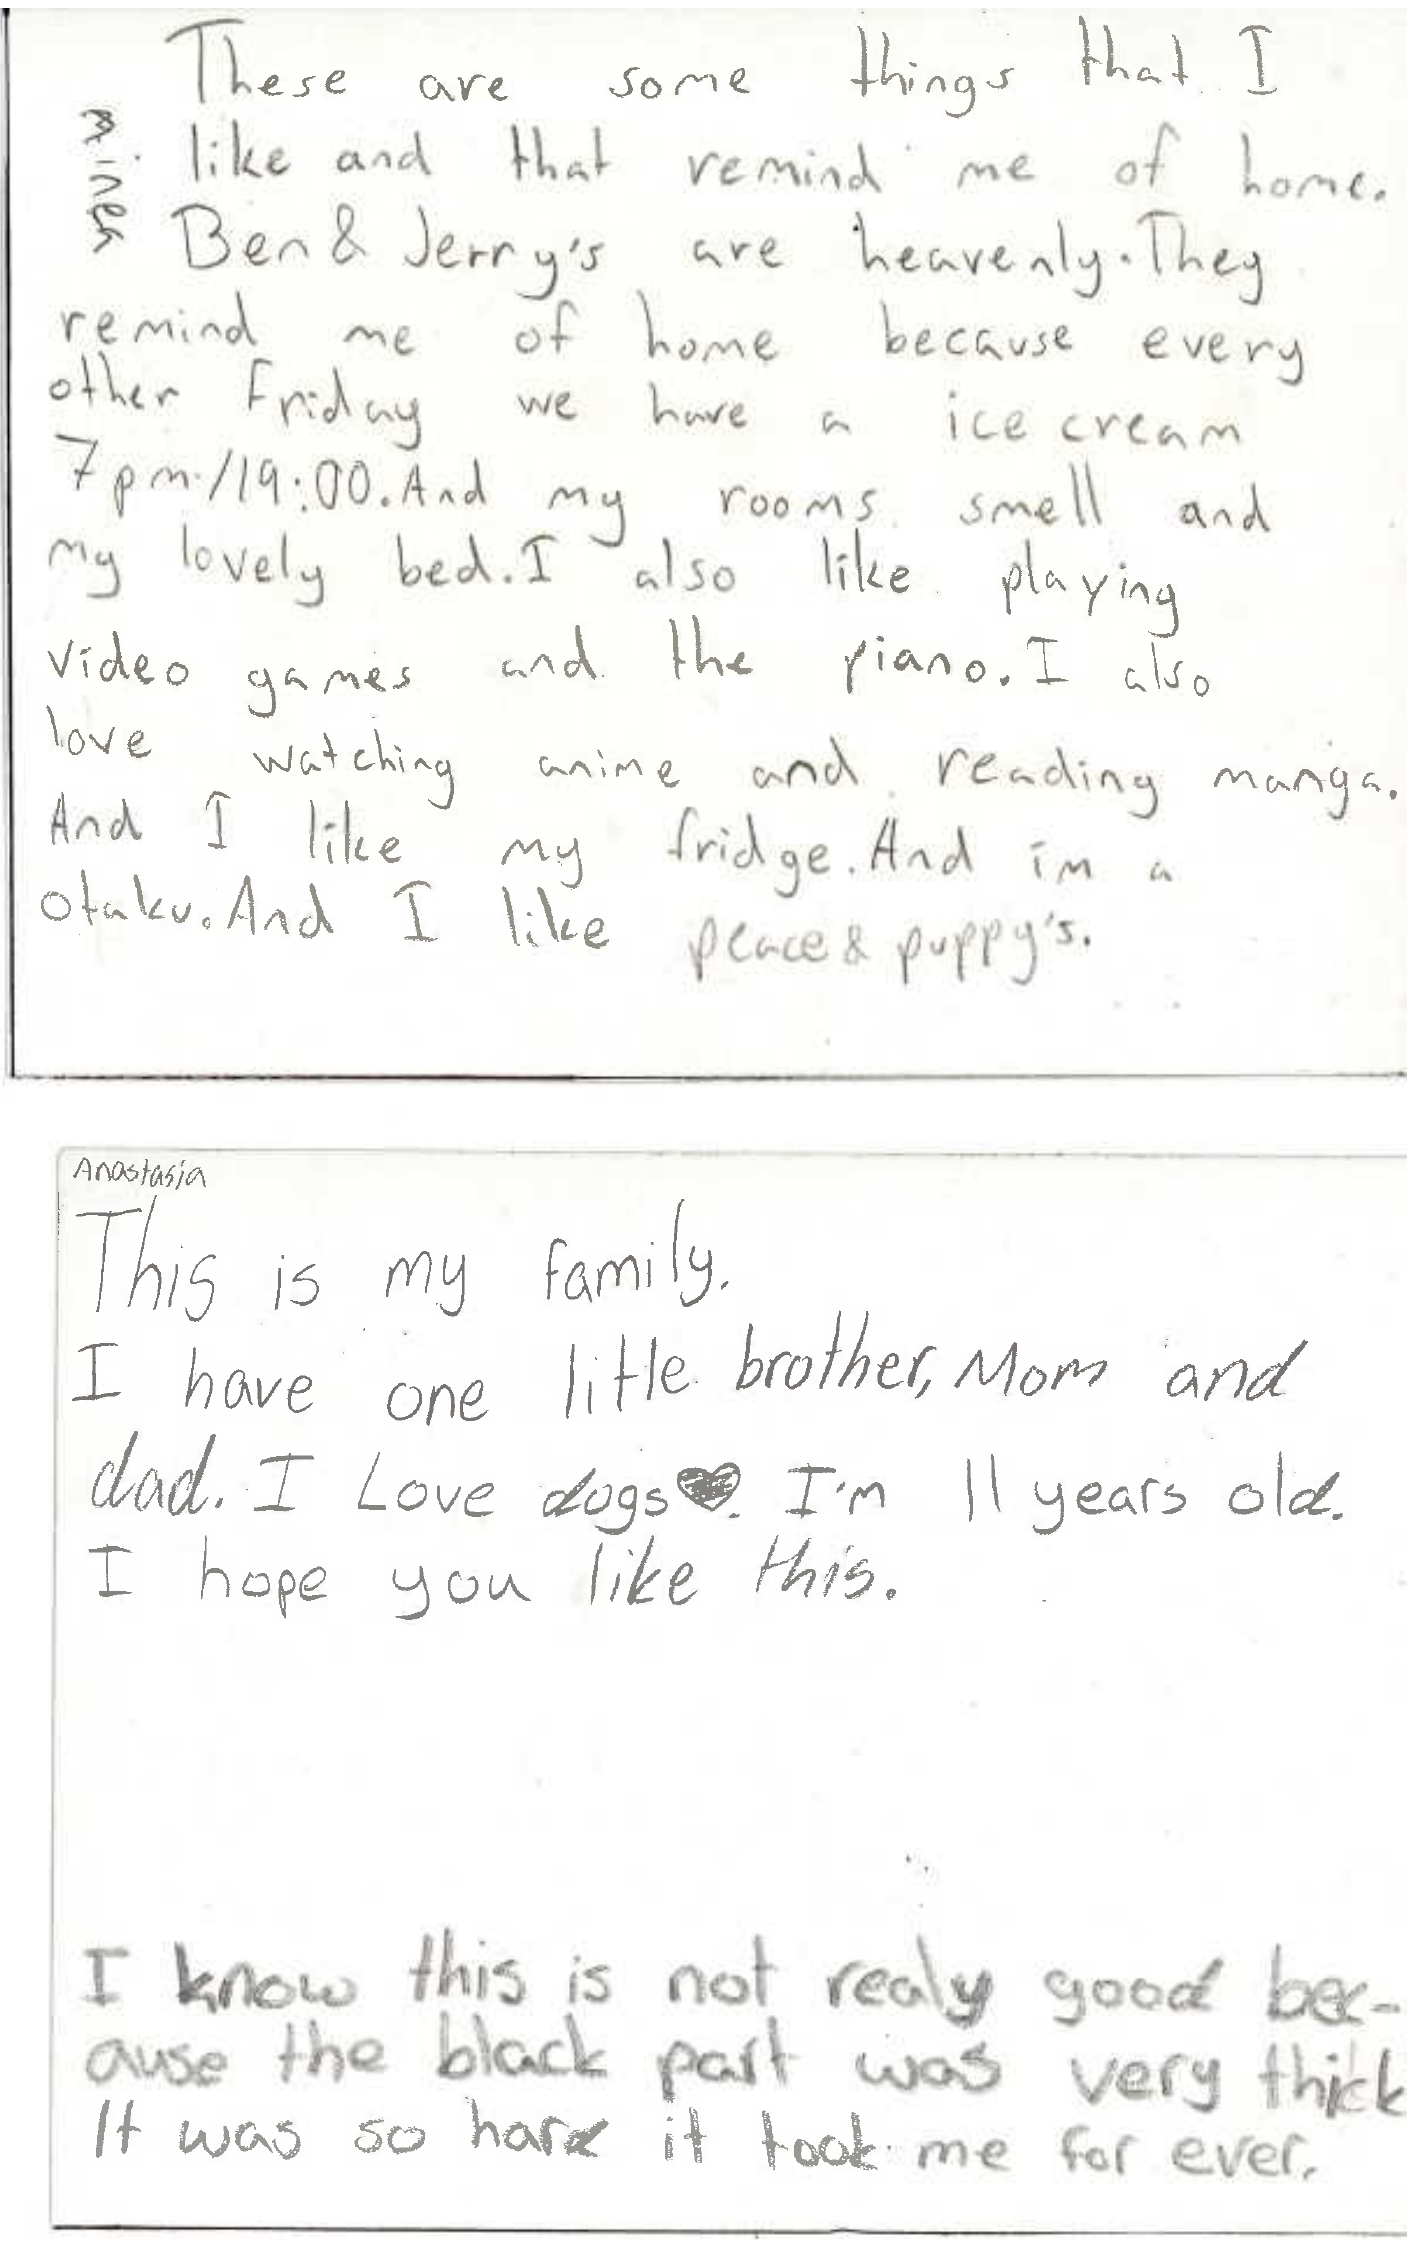 Mineh
These are some things that I
like and that remind me of home.
Ben & Jerry's are heavenly. They
remind me of home because every
other Friday we have a ice cream
7pm/19:00. And my rooms smell and
my lovely bed. I also like playing
video games and the piano. I also
love watching anime and reading manga.
And I like my fridge. And im a
otaku. And I like peace & puppy's.
Anastasia
This is my family.
I have one little brother, Mom and
dad. I Love dogs♥. I'm 11 years old.
I hope you like this.
I know this is not realy good bec-
ause the black part was very thick
It was so hard it took me for ever.